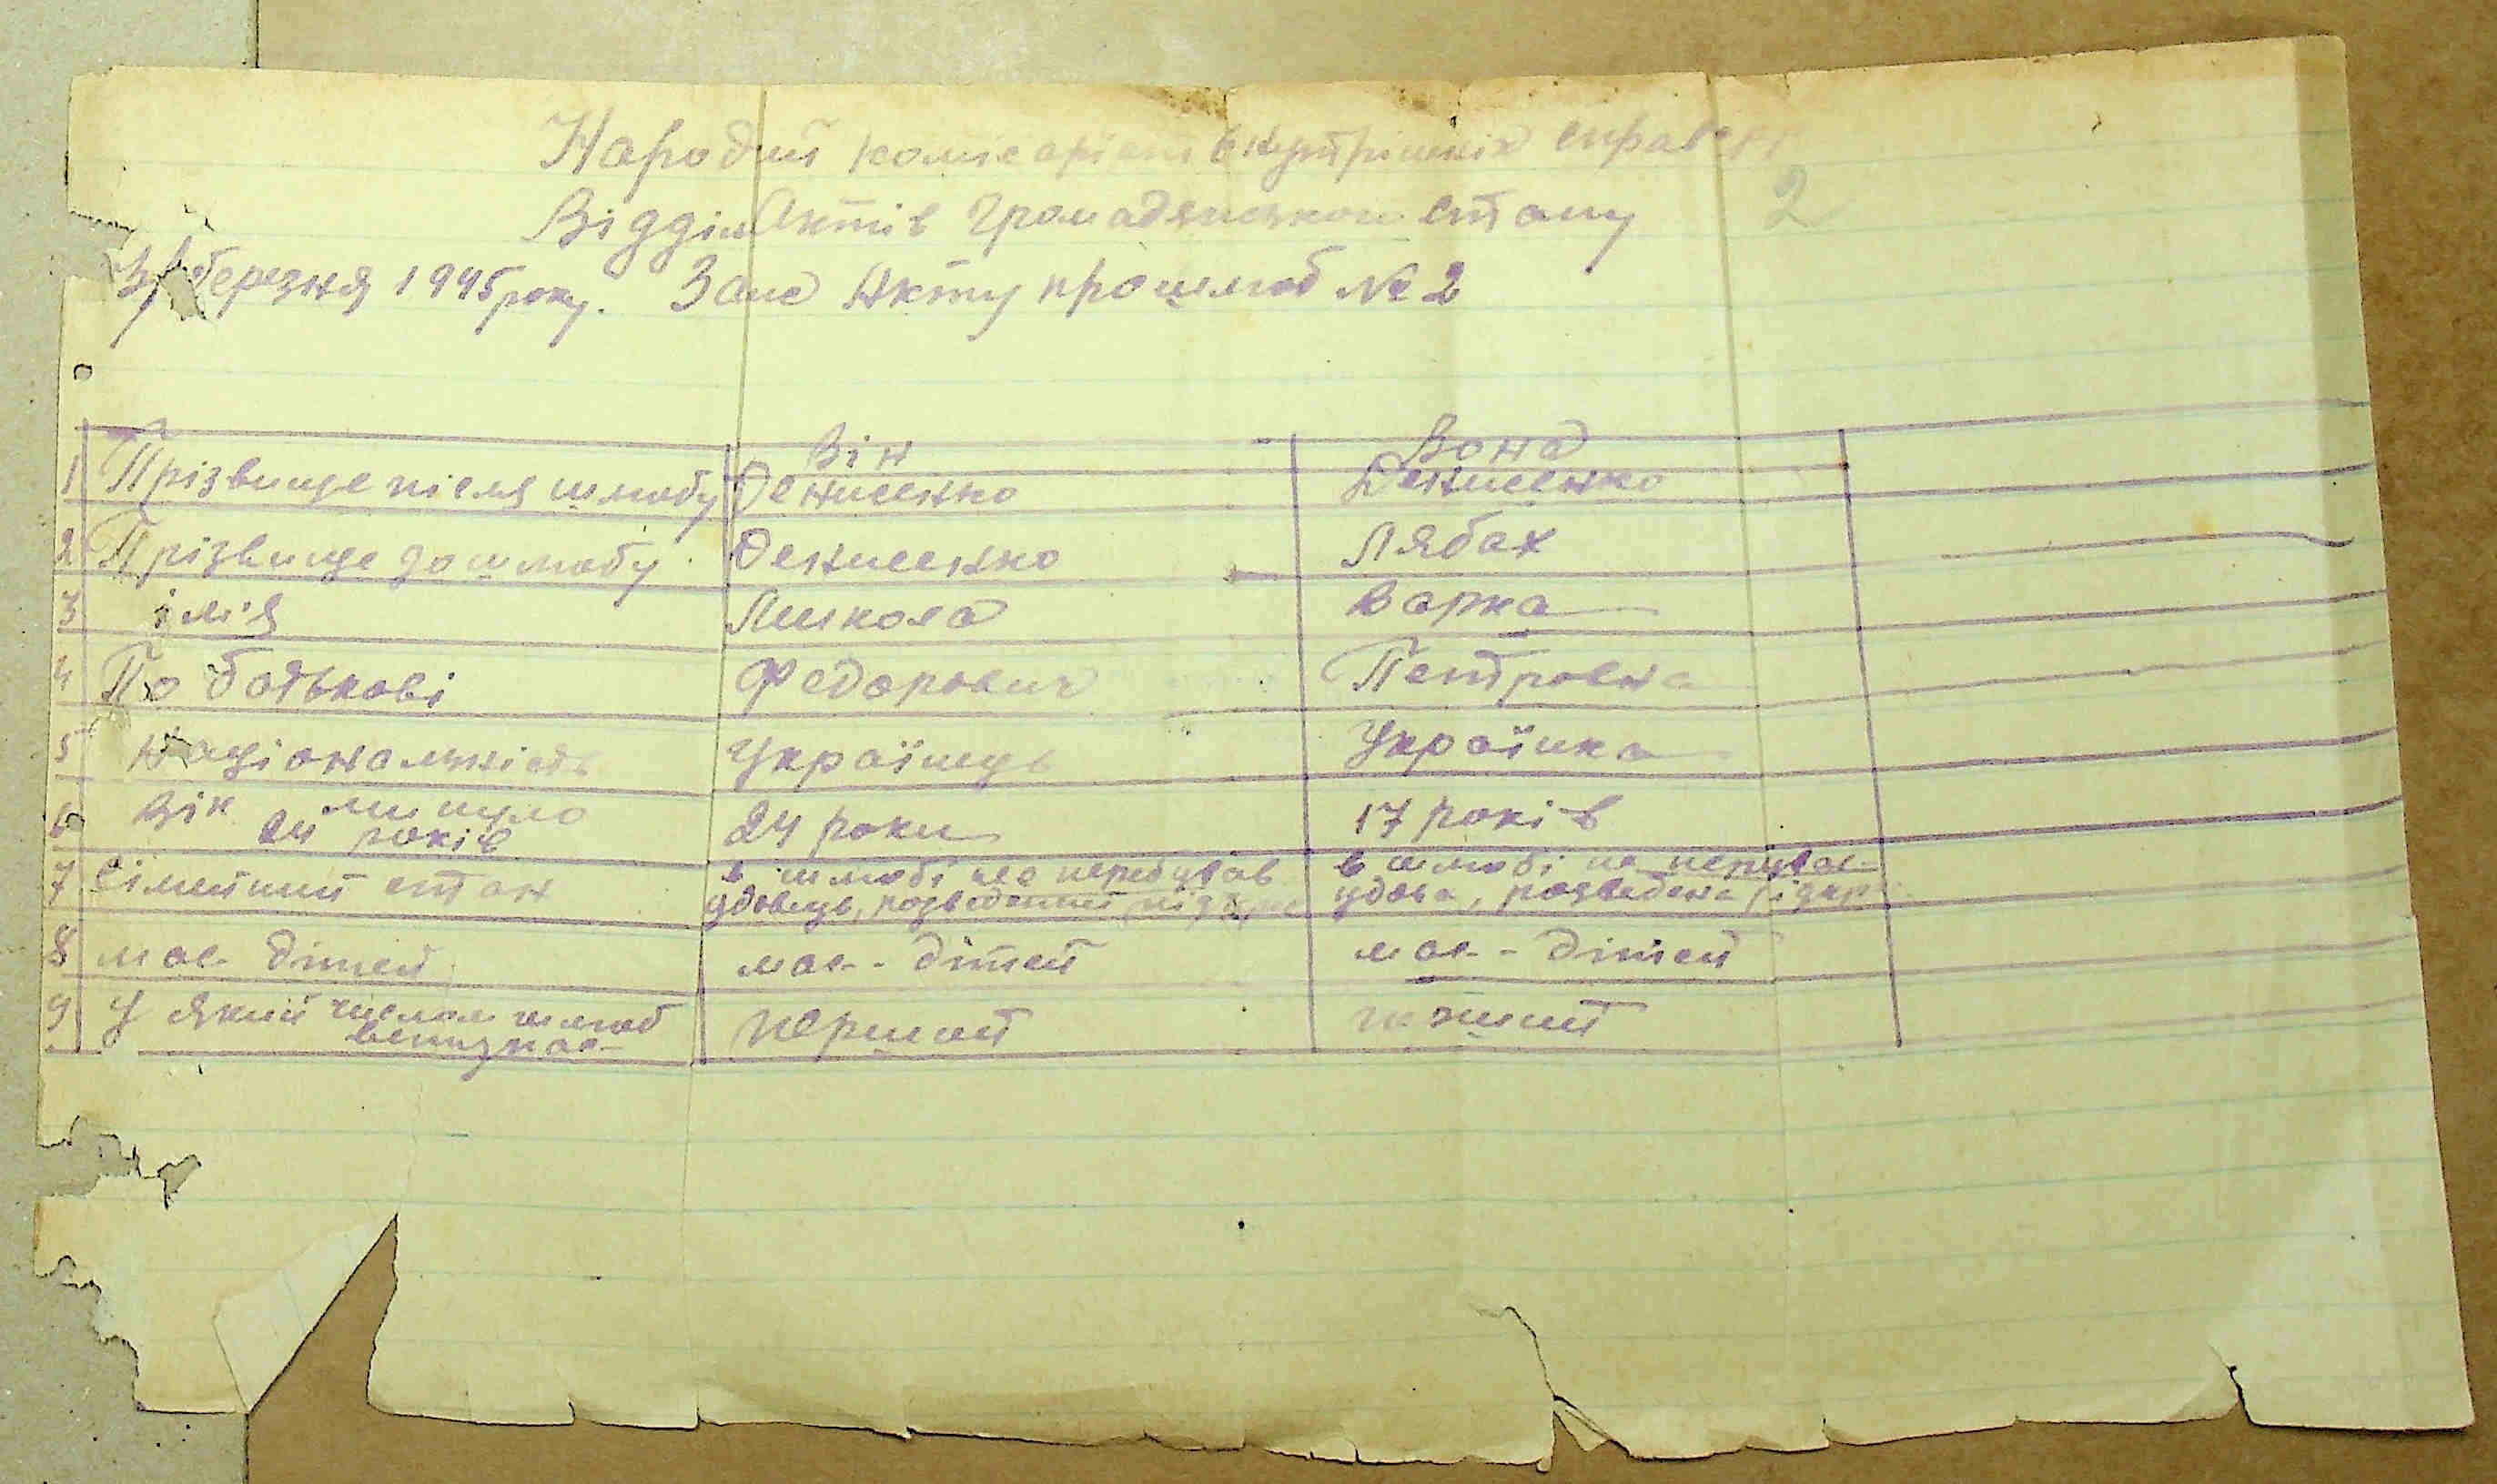 Народний комісаріят внутрішніх справ
Відділ Актів громадянського стану 2
березня 1945 року. Запис Акту про шлюб № 2
Він Вона
1 Прізвище після шлюбу Денисенко Денисенко
2 Прізвище до шлюбу Денисенко Лябах
3 імʼя Микола Варка
4 По батькові Федорович Петровна
5 Національність Українець Українка
6 Вік минуло 24 роки 17 років
24 років
7 Сімейний стан в шлюбі не перебував в шлюбі не
удовець, розведений удова, розведена
8 має дітей має - дітей має - дітей
9 У який числом шлюб перший
вступає